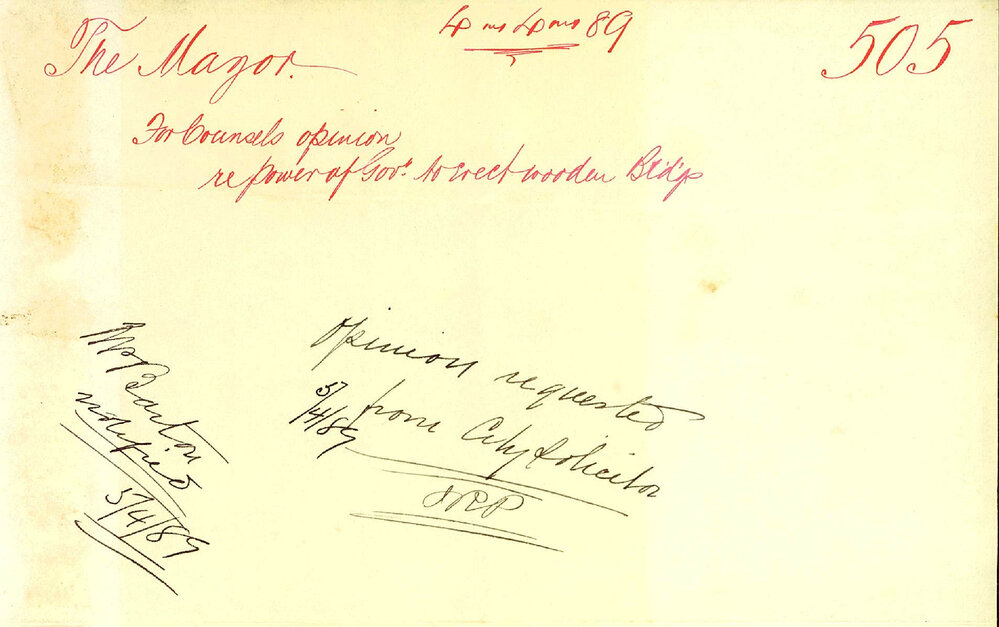 4 mo 4 mo 89
505
The Mayor.
For Counsels opinion
re power of Govt. to erect wooden Bldgs
Opinion requested
from City Solicitor
5/4/89
Mr Barton
notified
5/4/89